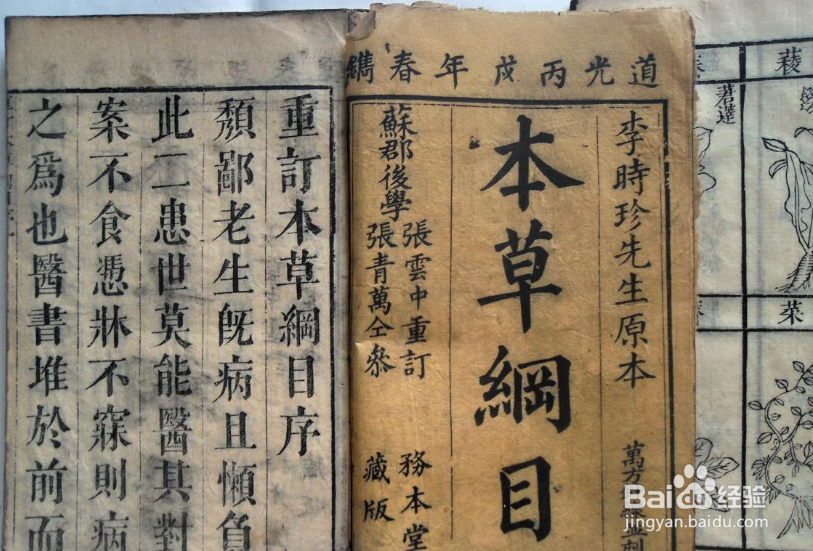 道光丙戌年春鐫
李時珍先生原本
萬方
本草綱目
蘇郡後學
張雲中重訂
張青萬仝參
務本堂
藏版
重訂本草綱目序
頹鄙老生旣病且懶負
此二患世莫能醫其對
案不食憑牀不寐則病
之爲也醫書堆於前而
莙薘
菜
Bai 经验
jingyan.baidu.com